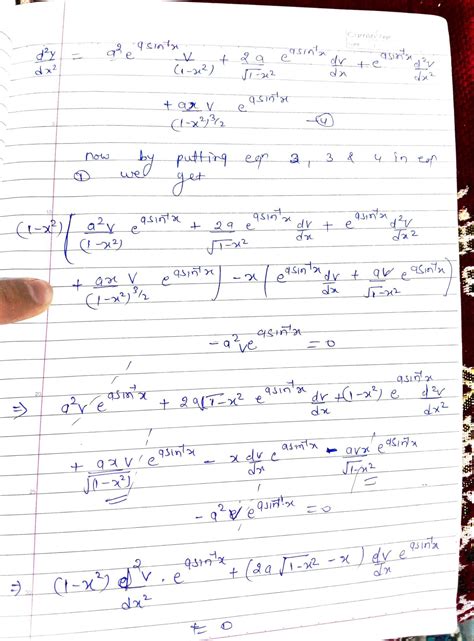 d²y/dx² = a² e^{a sin⁻¹x} v/(1-x²) + 2a/√1-x² e^{a sin⁻¹x} dv/dx + e^{a sin⁻¹x} d²v/dx²
+ ax v/(1-x²)^{3/2} e^{a sin⁻¹x} —④
now by putting eqn 2, 3 & 4 in eqn
① we get
(1-x²) ( a²v/(1-x²) e^{a sin⁻¹x} + 2a/√1-x² e^{a sin⁻¹x} dv/dx + e^{a sin⁻¹x} d²v/dx²
+ ax v/(1-x²)^{3/2} e^{a sin⁻¹x} ) - x ( e^{a sin⁻¹x} dv/dx + av/√1-x² e^{a sin⁻¹x} )
- a² v e^{a sin⁻¹x} = 0
⇒ a² v e^{a sin⁻¹x} + 2a√1-x² e^{a sin⁻¹x} dv/dx + (1-x²) e^{a sin⁻¹x} d²v/dx²
+ ax v/√(1-x²) e^{a sin⁻¹x} - x dv/dx e^{a sin⁻¹x} - avx/√1-x² e^{a sin⁻¹x}
- a² v e^{a sin⁻¹x} = 0
⇒ (1-x²) d²v/dx² . e^{a sin⁻¹x} + (2a√1-x² - x) dv/dx e^{a sin⁻¹x}
= 0